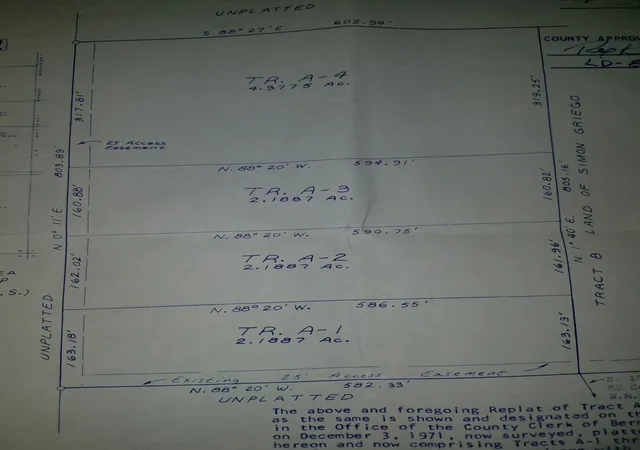 UNPLATTED
S 88° 27' E. 602.99'
COUNTY APPROV
TR. A-4
4.3775 AC.
317.81'
319.25'
25' Access
Easement
N. 88° 20' W. 594.91'
803.89'
N 0° 11' E.
160.88'
TR. A-3
2.1887 AC.
160.82'
805.16'
N. 1° 40' E.
TRACT B LAND OF SIMON GRIEGO
N. 88° 20' W. 590.75'
162.02'
TR. A-2
2.1887 AC.
161.96'
N. 88° 20' W. 586.55'
UNPLATTED
163.18'
TR. A-1
2.1887 AC.
163.13'
Existing 25' Access Easement
N. 88° 20' W. 582.33'
UNPLATTED
The above and foregoing Replat of Tract A
as the same is shown and designated on
in the Office of the County Clerk of Ber
on December 3, 1971, now surveyed, platt
hereon and now comprising Tracts A-1 thr